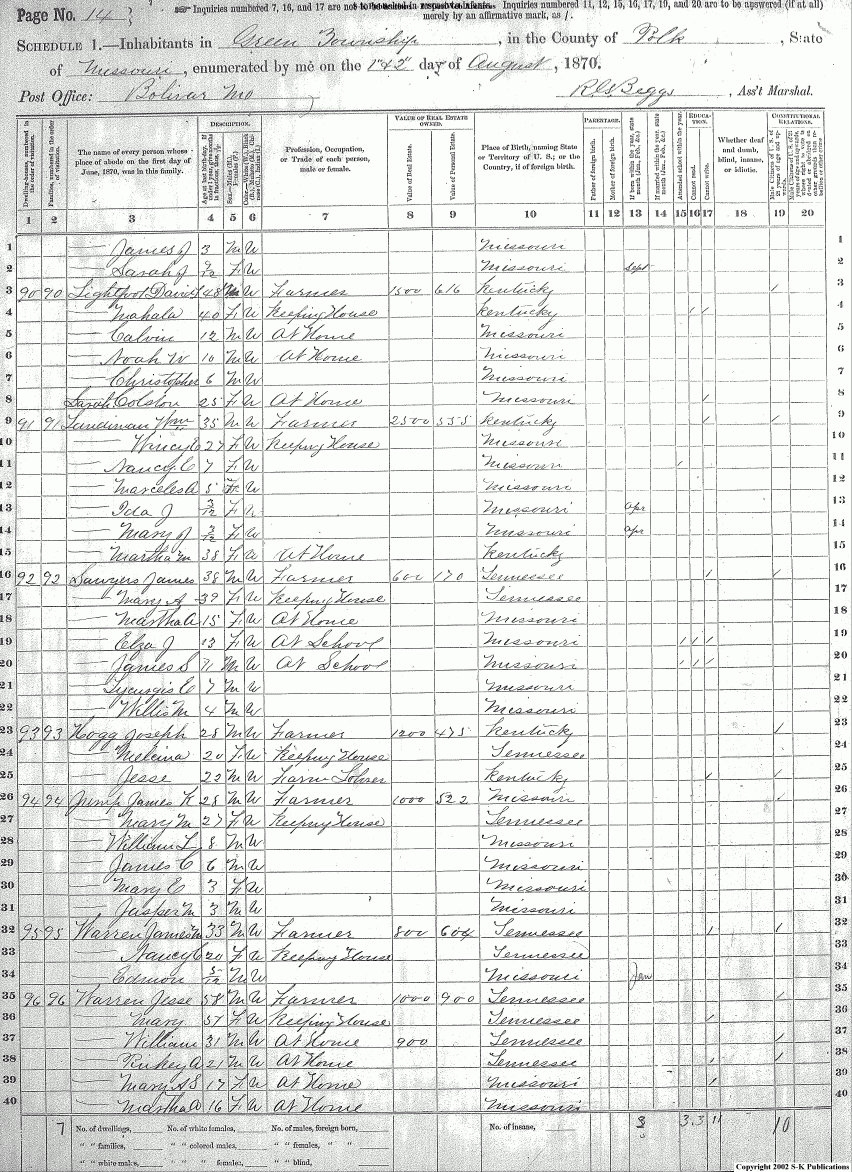 Page No. 14
Inquiries numbered 7, 16, and 17 are not to be asked in respect to infants. Inquiries numbered 11, 12, 15, 16, 17, 19, and 20 are to be answered (if at all)
merely by an affirmative mark, as /.
SCHEDULE 1.—Inhabitants in Green Township, in the County of Polk, State
of Missouri, enumerated by me on the day of August, 1870.
Post Office: Bolivar Mo R. S. Beggs, Ass't Marshal.
Dwelling-houses, numbered in the order of visitation.
Families, numbered in the order of visitation.
The name of every person whose place of abode on the first day of June, 1870, was in this family.
DESCRIPTION.
Profession, Occupation, or Trade of each person, male or female.
VALUE OF REAL ESTATE OWNED.
Value of Real Estate.
Value of Personal Estate.
Place of Birth, naming State or Territory of U. S.; or the Country, if of foreign birth.
PARENTAGE.
Father of foreign birth.
Mother of foreign birth.
If born within the year, state month (Jan., Feb., &c.)
If married within the year, state month (Jan., Feb., &c.)
Attended school within the year.
EDUCATION.
Cannot read.
Cannot write.
Whether deaf and dumb, blind, insane, or idiotic.
CONSTITUTIONAL RELATIONS.
1 2 3 4 5 6 7 8 9 10 11 12 13 14 15 16 17 18 19 20
1 — James J 3 M W Missouri 1
2 — Sarah J 9/12 F W Missouri Sept 2
3 90 90 Lightfoot David 48 M W Farmer 1500 616 Kentucky / 3
4 — Mahala 40 F W Keeping House Kentucky / / 4
5 — Calvin 12 M W At Home Missouri 5
6 — Noah W 10 M W At Home Missouri 6
7 — Christopher 6 M W Missouri 7
8 Sarah Colston 25 F W At Home Missouri / 8
9 91 91 Lindiman Wm 35 M W Farmer 2500 555 Kentucky / / 9
10 — 27 F W Keeping House Missouri 10
11 — Nancy C 7 F W Missouri / 11
12 — Marceles A 5 F W Missouri 12
13 — Ida J 3/12 F W Missouri Apr 13
14 — Mary J 3/12 F W Missouri Apr 14
15 — Martha M 38 F W At Home Kentucky 15
16 92 92 Sawyers James 38 M W Farmer 600 170 Tennessee / / 16
17 — Mary A 39 F W Keeping House Tennessee 17
18 — Martha A 15 F W At Home Missouri 18
19 — Elza J 13 F W At School Missouri / / / 19
20 — James S 11 M W At School Missouri / / / 20
21 — Lycurgis C 7 M W Missouri 21
22 — Willis M 4 M W Missouri 22
23 93 93 Hogg Joseph 28 M W Farmer 1200 475 Kentucky / 23
24 — Melcina 20 F W Keeping House Tennessee 24
25 — Jesse 22 M W Farm Kentucky / / 25
26 94 94 Jump James K 28 M W Farmer 1000 522 Missouri / 26
27 — Mary M 27 F W Keeping House Tennessee 27
28 — William L 8 M W Missouri 28
29 — James C 6 M W Missouri 29
30 — Mary E 3 F W Missouri 30
31 — Jasper M 3 M W Missouri 31
32 95 95 Warren James M 33 M W Farmer 800 604 Tennessee / / 32
33 — Nancy C 20 F W Keeping House Tennessee 33
34 — Edmon 5/12 M W Missouri Jan 34
35 96 96 Warren Jesse 58 M W Farmer 1000 900 Tennessee / 35
36 — Mary 57 F W Keeping House Tennessee / 36
37 — William 31 M W At Home 900 Tennessee / 37
38 — A 21 M W At Home Tennessee / / 38
39 — Mary A S 17 F W At Home Missouri / 39
40 — Martha A 16 F W At Home Missouri 40
7 No. of dwellings, No. of white females, No. of males, foreign born, No. of insane, 3 3 3 11 10
" " families, " " colored males, " " females, "
" " white males, " " females, " " blind,
Copyright 2002 S-K Publications